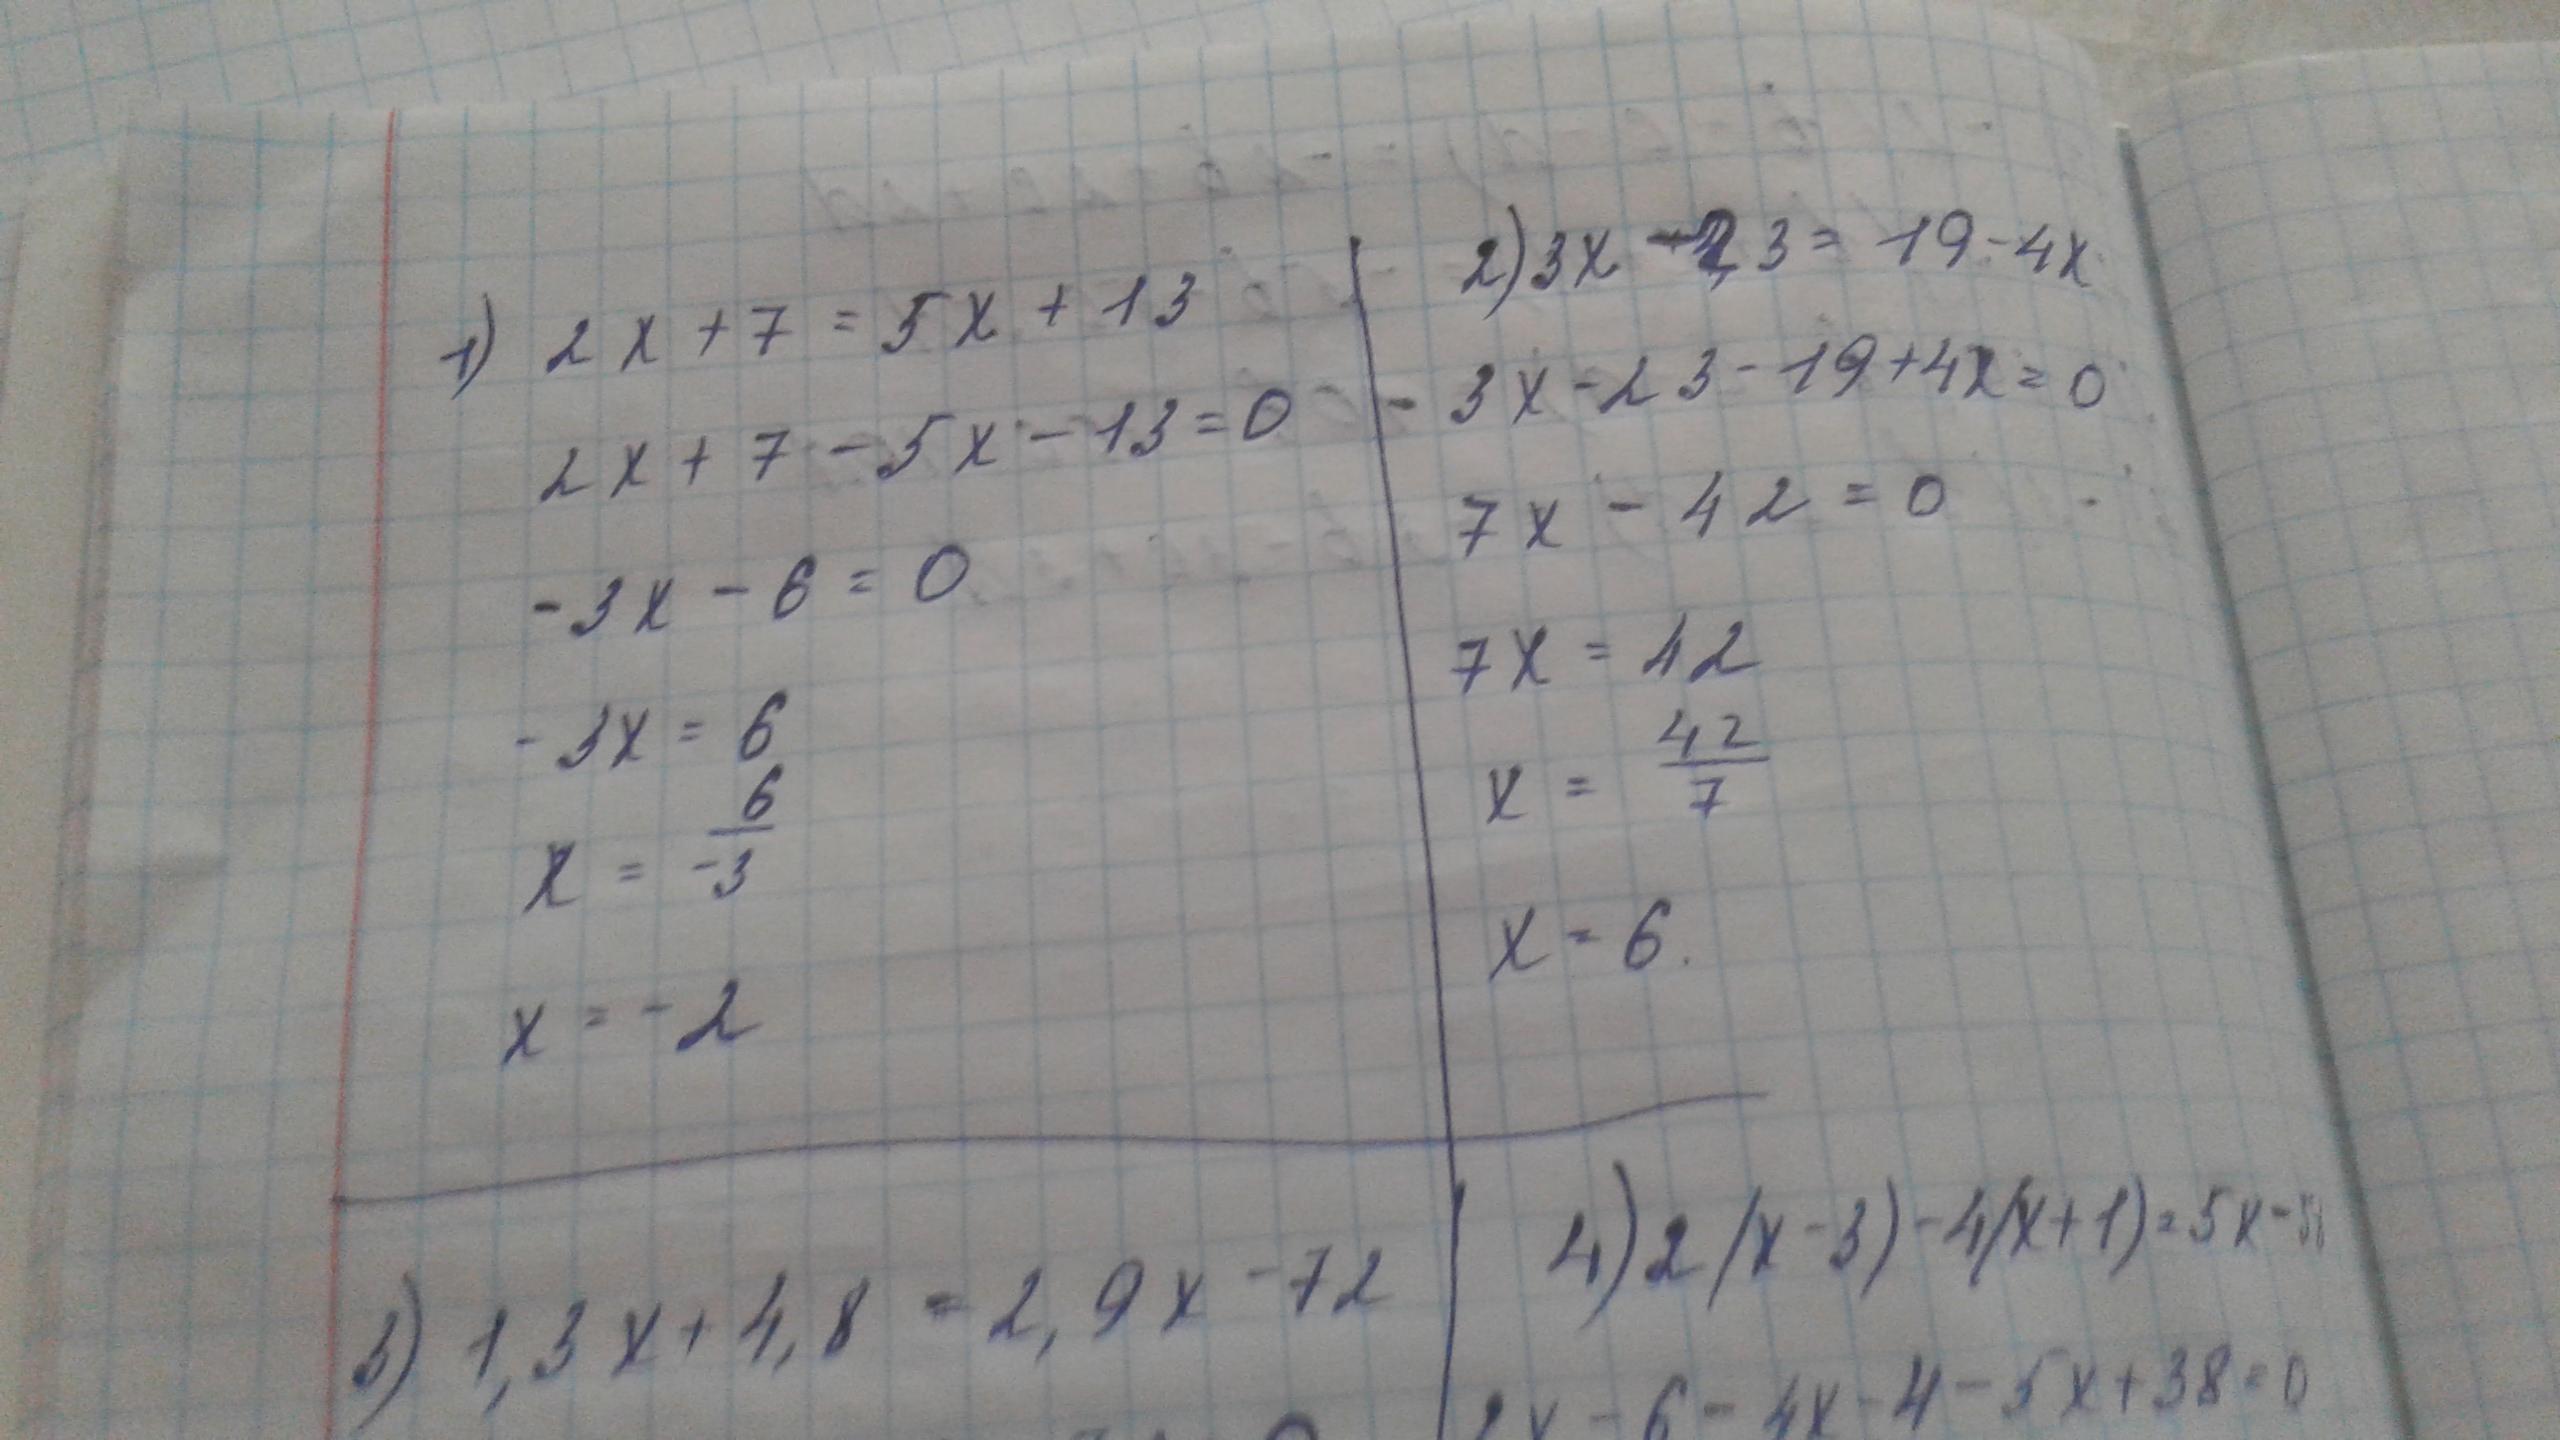 1) 2x + 7 = 5x + 13
2x + 7 - 5x - 13 = 0
-3x - 6 = 0
-3x = 6
x = 6/-3
x = -2
2) 3x - 23 = 19 - 4x
3x - 23 - 19 + 4x = 0
7x - 42 = 0
7x = 42
x = 42/7
x = 6.
3) 1,3x + 4,8 = 2,9x - 72
4) 2(x - 3) - 4(x + 1) = 5x -
2x - 6 - 4x - 4 - 5x + 38 = 0